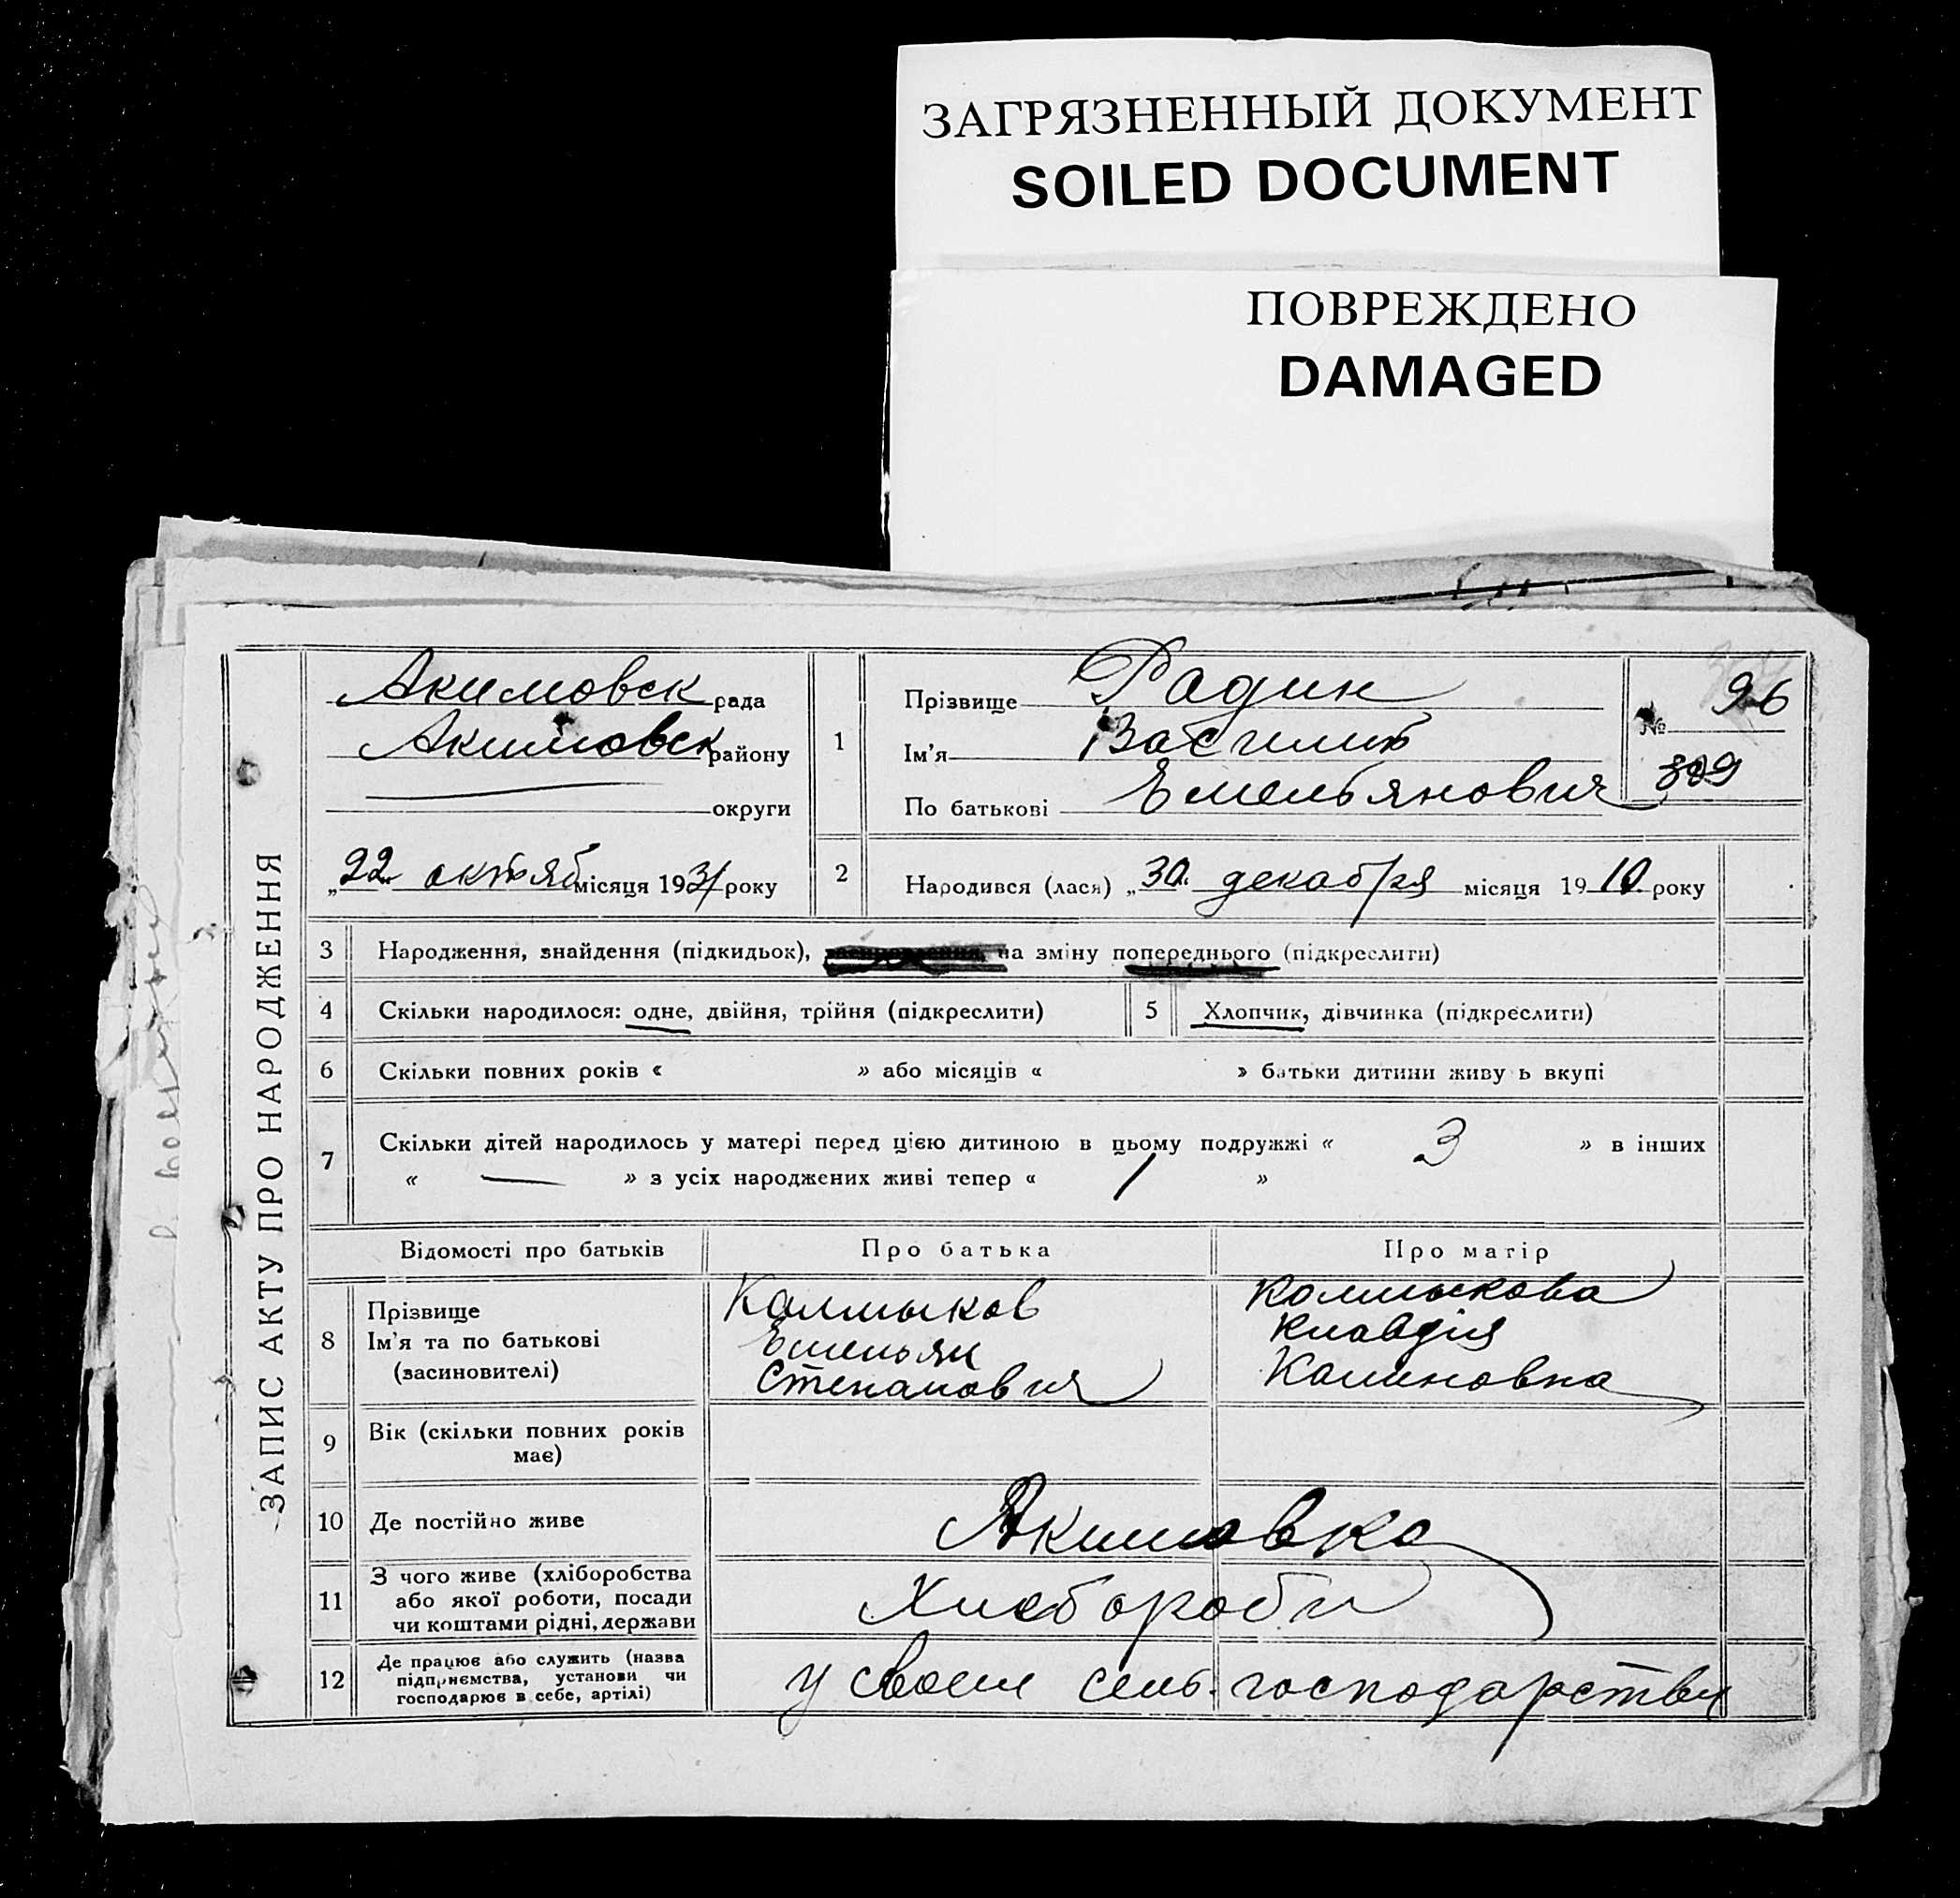 ЗАГРЯЗНЕННЫЙ ДОКУМЕНТ
SOILED DOCUMENT
ПОВРЕЖДЕНО
DAMAGED
ЗАПИС АКТУ ПРО НАРОДЖЕННЯ
Акимовск рада
Акимовск району
округи
„22“ октяб місяця 1931 року
1
Прізвище Радин
Ім'я Василий
По батькові Емельянович
№ 96
399
2
Народився (лася) „30“ декабря місяця 1910 року
3 Народження, знайдення (підкидьок), на зміну попереднього (підкреслити)
4 Скільки народилося: одне, двійня, трійня (підкреслити)
5 Хлопчик, дівчинка (підкреслити)
6 Скільки повних років « » або місяців « » батьки дитини живу ь вкупі
7 Скільки дітей народилось у матері перед цією дитиною в цьому подружжі « 3 » в інших
« — » з усіх народжених живі тепер « 1 »
Відомості про батьків Про батька Про матір
8 Прізвище
Ім'я та по батькові
(засиновителі)
Калмыков
Емельян
Степанович
Калмыкова
Клавдія
Калиновна
9 Вік (скільки повних років
має)
10 Де постійно живе Акимовка
11 З чого живе (хліборобства
або якої роботи, посади
чи коштами рідні, держави
Хлебороби
12 Де працює або служить (назва
підприємства, установи чи
господарює в себе, артілі)
у своем сель. господарстви